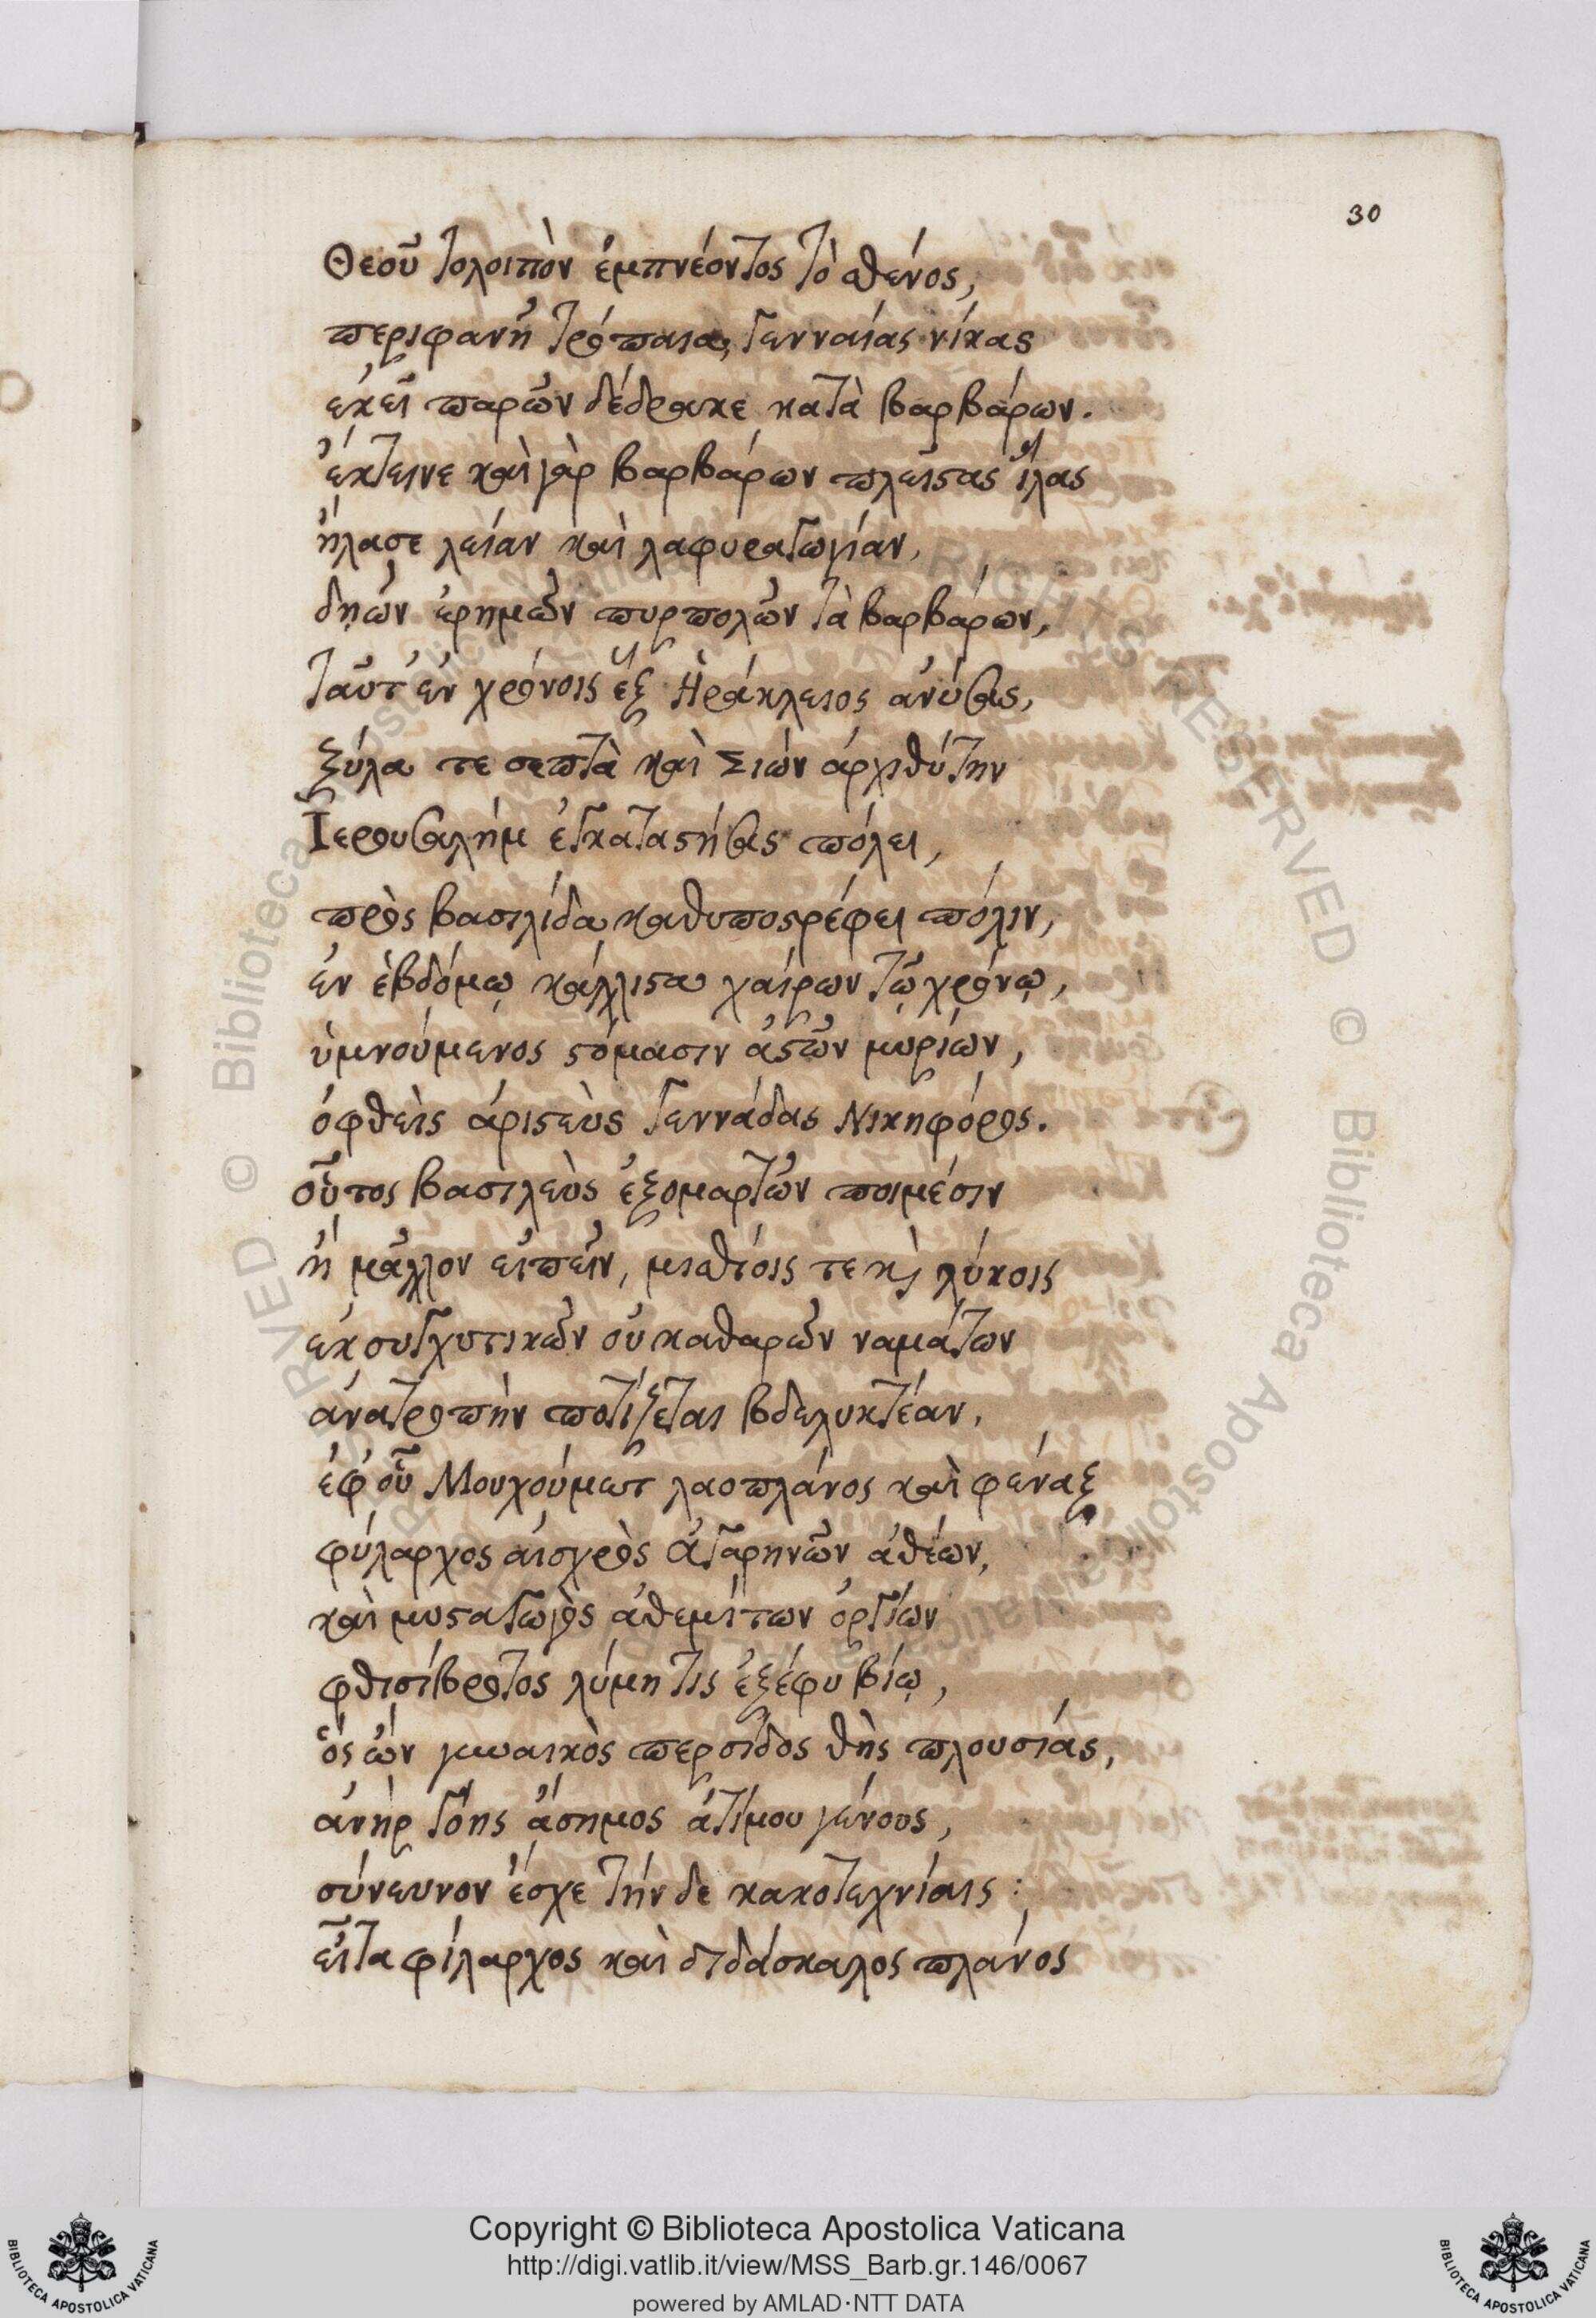 30
Θεοῦ τολοιπὸν ἐμπνέοντος τὸ σθένος,
περιφανῆ τρόπαια, γενναίας νίκας
ἐκεῖ παρὼν δέδρακε κατὰ βαρβάρων.
ἔκτεινε καὶ γὰρ βαρβάρων πλείστας ἴλας
ἤλασε λείαν καὶ λαφυραγωγίαν,
δηῶν ἐρημῶν πυρπολῶν τὰ βαρβάρων,
ταῦτ ἐν χρόνοις ἓξ Ἡράκλειος ἀνύσας,
ξύλα τε σεπτὰ καὶ Σιὼν ἀρχιθύτην
Ἱερουσαλὴμ ἐγκαταστήσας πόλει,
πρὸς βασιλίδα καθυποστρέφει πόλιν,
ἐν ἑβδόμῳ κάλλιστα χαίρων τῷ χρόνῳ,
ὑμνούμενος στόμασιν ἀστῶν μυρίων,
ὀφθεὶς ἀριστεὺς γεννάδας Νικηφόρος.
οὗτος βασιλεὺς ἐξομαρτῶν ποιμέσιν
ἢ μᾶλλον εἰπεῖν, μισθίοις τε καὶ λύκοις
ἐκ συγχυτικῶν οὐ καθαρῶν ναμάτων
ἀνατροπὴν ποτίζεται βδελυκτέαν,
ἐφ οὗ Μουχούμετ λαοπλάνος καὶ φέναξ
φύλαρχος αἰσχρὸς ἀγαρηνῶν ἀθέων,
καὶ μυσταγωγὸς ἀθεμίτων ὀργίων
φθισίβροτος λύμη τις ἐξέφυ βίῳ,
ὃς ὢν γυναικὸς περσίδος θὴς πλουσίας,
ἀνὴρ γόης ἄσημος ἀτίμου γένους,
σύνευνον ἔσχε τήν δε κακοτεχνίαις :
εἶτα φίλαρχος καὶ διδάσκαλος πλάνος
Copyright © Biblioteca Apostolica Vaticana
http://digi.vatlib.it/view/MSS_Barb.gr.146/0067
powered by AMLAD·NTT DATA
BIBLIOTECA APOSTOLICA VATICANA
BIBLIOTECA APOSTOLICA VATICANA